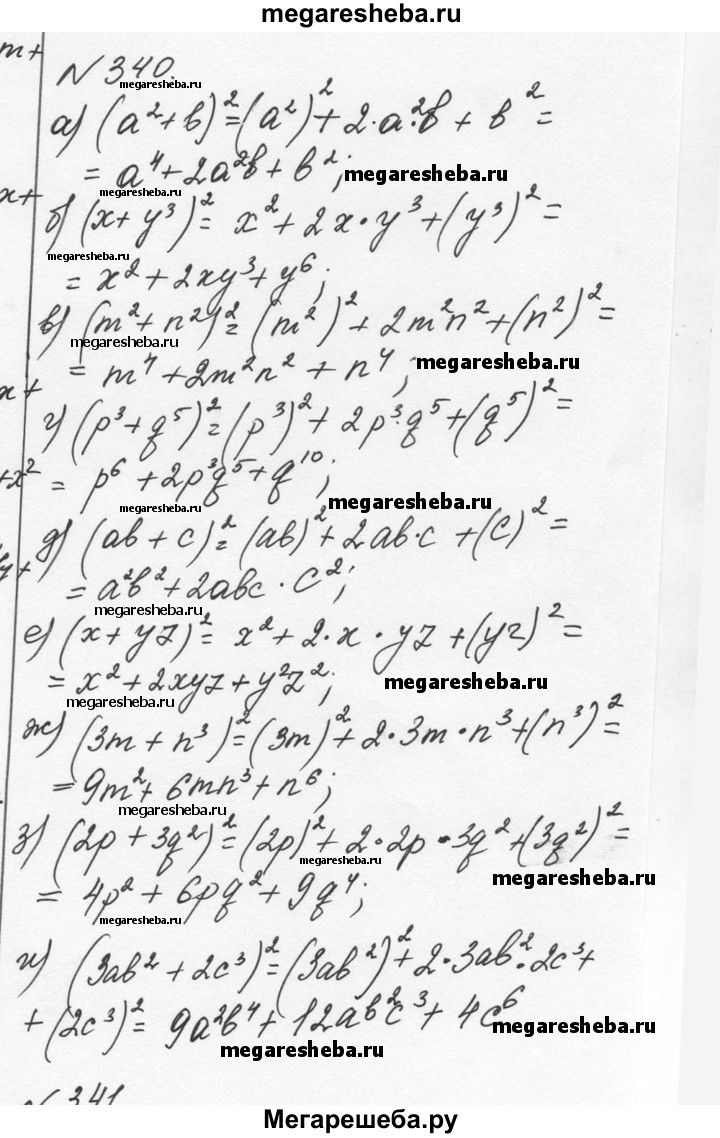 megaresheba.ru
m+
N 340.
megaresheba.ru
а) (a²+b)²=(a²)²+2·a²·b+b²=
= a⁴+2a²b+b²; megaresheba.ru
megaresheba.ru
x+
б) (x+y³)²= x²+2x·y³+(y³)²=
megaresheba.ru
= x²+2xy³+y⁶;
в) (m²+n²)²=(m²)²+2m²n²+(n²)²=
megaresheba.ru
= m⁴+2m²n²+n⁴; megaresheba.ru
x+
г) (p³+q⁵)²=(p³)²+2p³·q⁵+(q⁵)²=
+x²
= p⁶+2p³q⁵+q¹⁰;
megaresheba.ru megaresheba.ru
д) (ab+c)²=(ab)²+2ab·c+(c)²=
= a²b²+2abc·c²;
megaresheba.ru
е) (x+yz)²= x²+2·x·yz+(yz)²=
= x²+2xyz+y²z²; megaresheba.ru
ж) (3m+n³)²=(3m)²+2·3m·n³+(n³)²=
= 9m²+6mn³+n⁶;
megaresheba.ru
з) (2p+3q²)²=(2p)²+2·2p·3q²+(3q²)²=
megaresheba.ru
= 4p²+6pq²+9q⁴; megaresheba.ru
megaresheba.ru
и) (3ab²+2c³)²=(3ab²)²+2·3ab²·2c³+
+(2c³)²= 9a²b⁴+12ab²c³+4c⁶
megaresheba.ru megaresheba.ru
N 341
Мегарешеба.ру